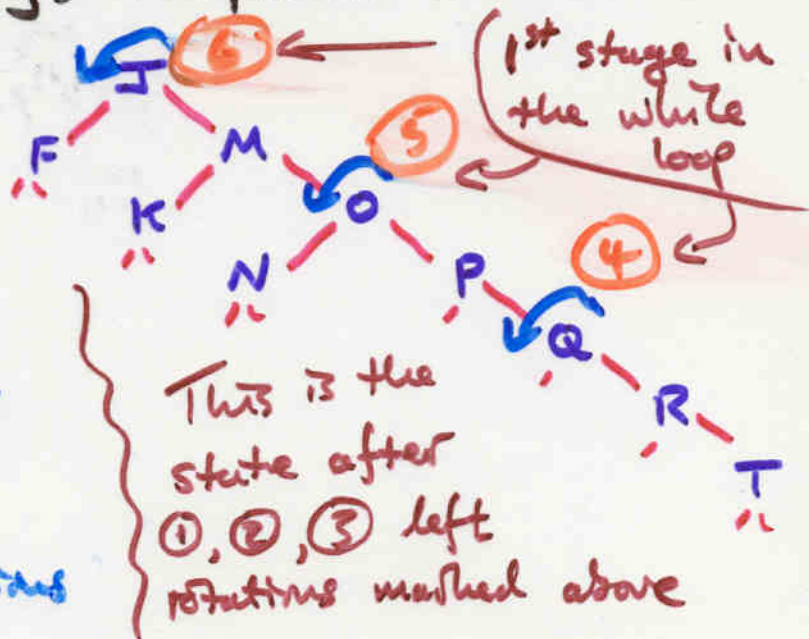 J
6
1st stage in
the while
loop
5
F
M
K
O
4
N
P
Q
This is the
state after
R
T
①, ②, ③ left
rotations marked above